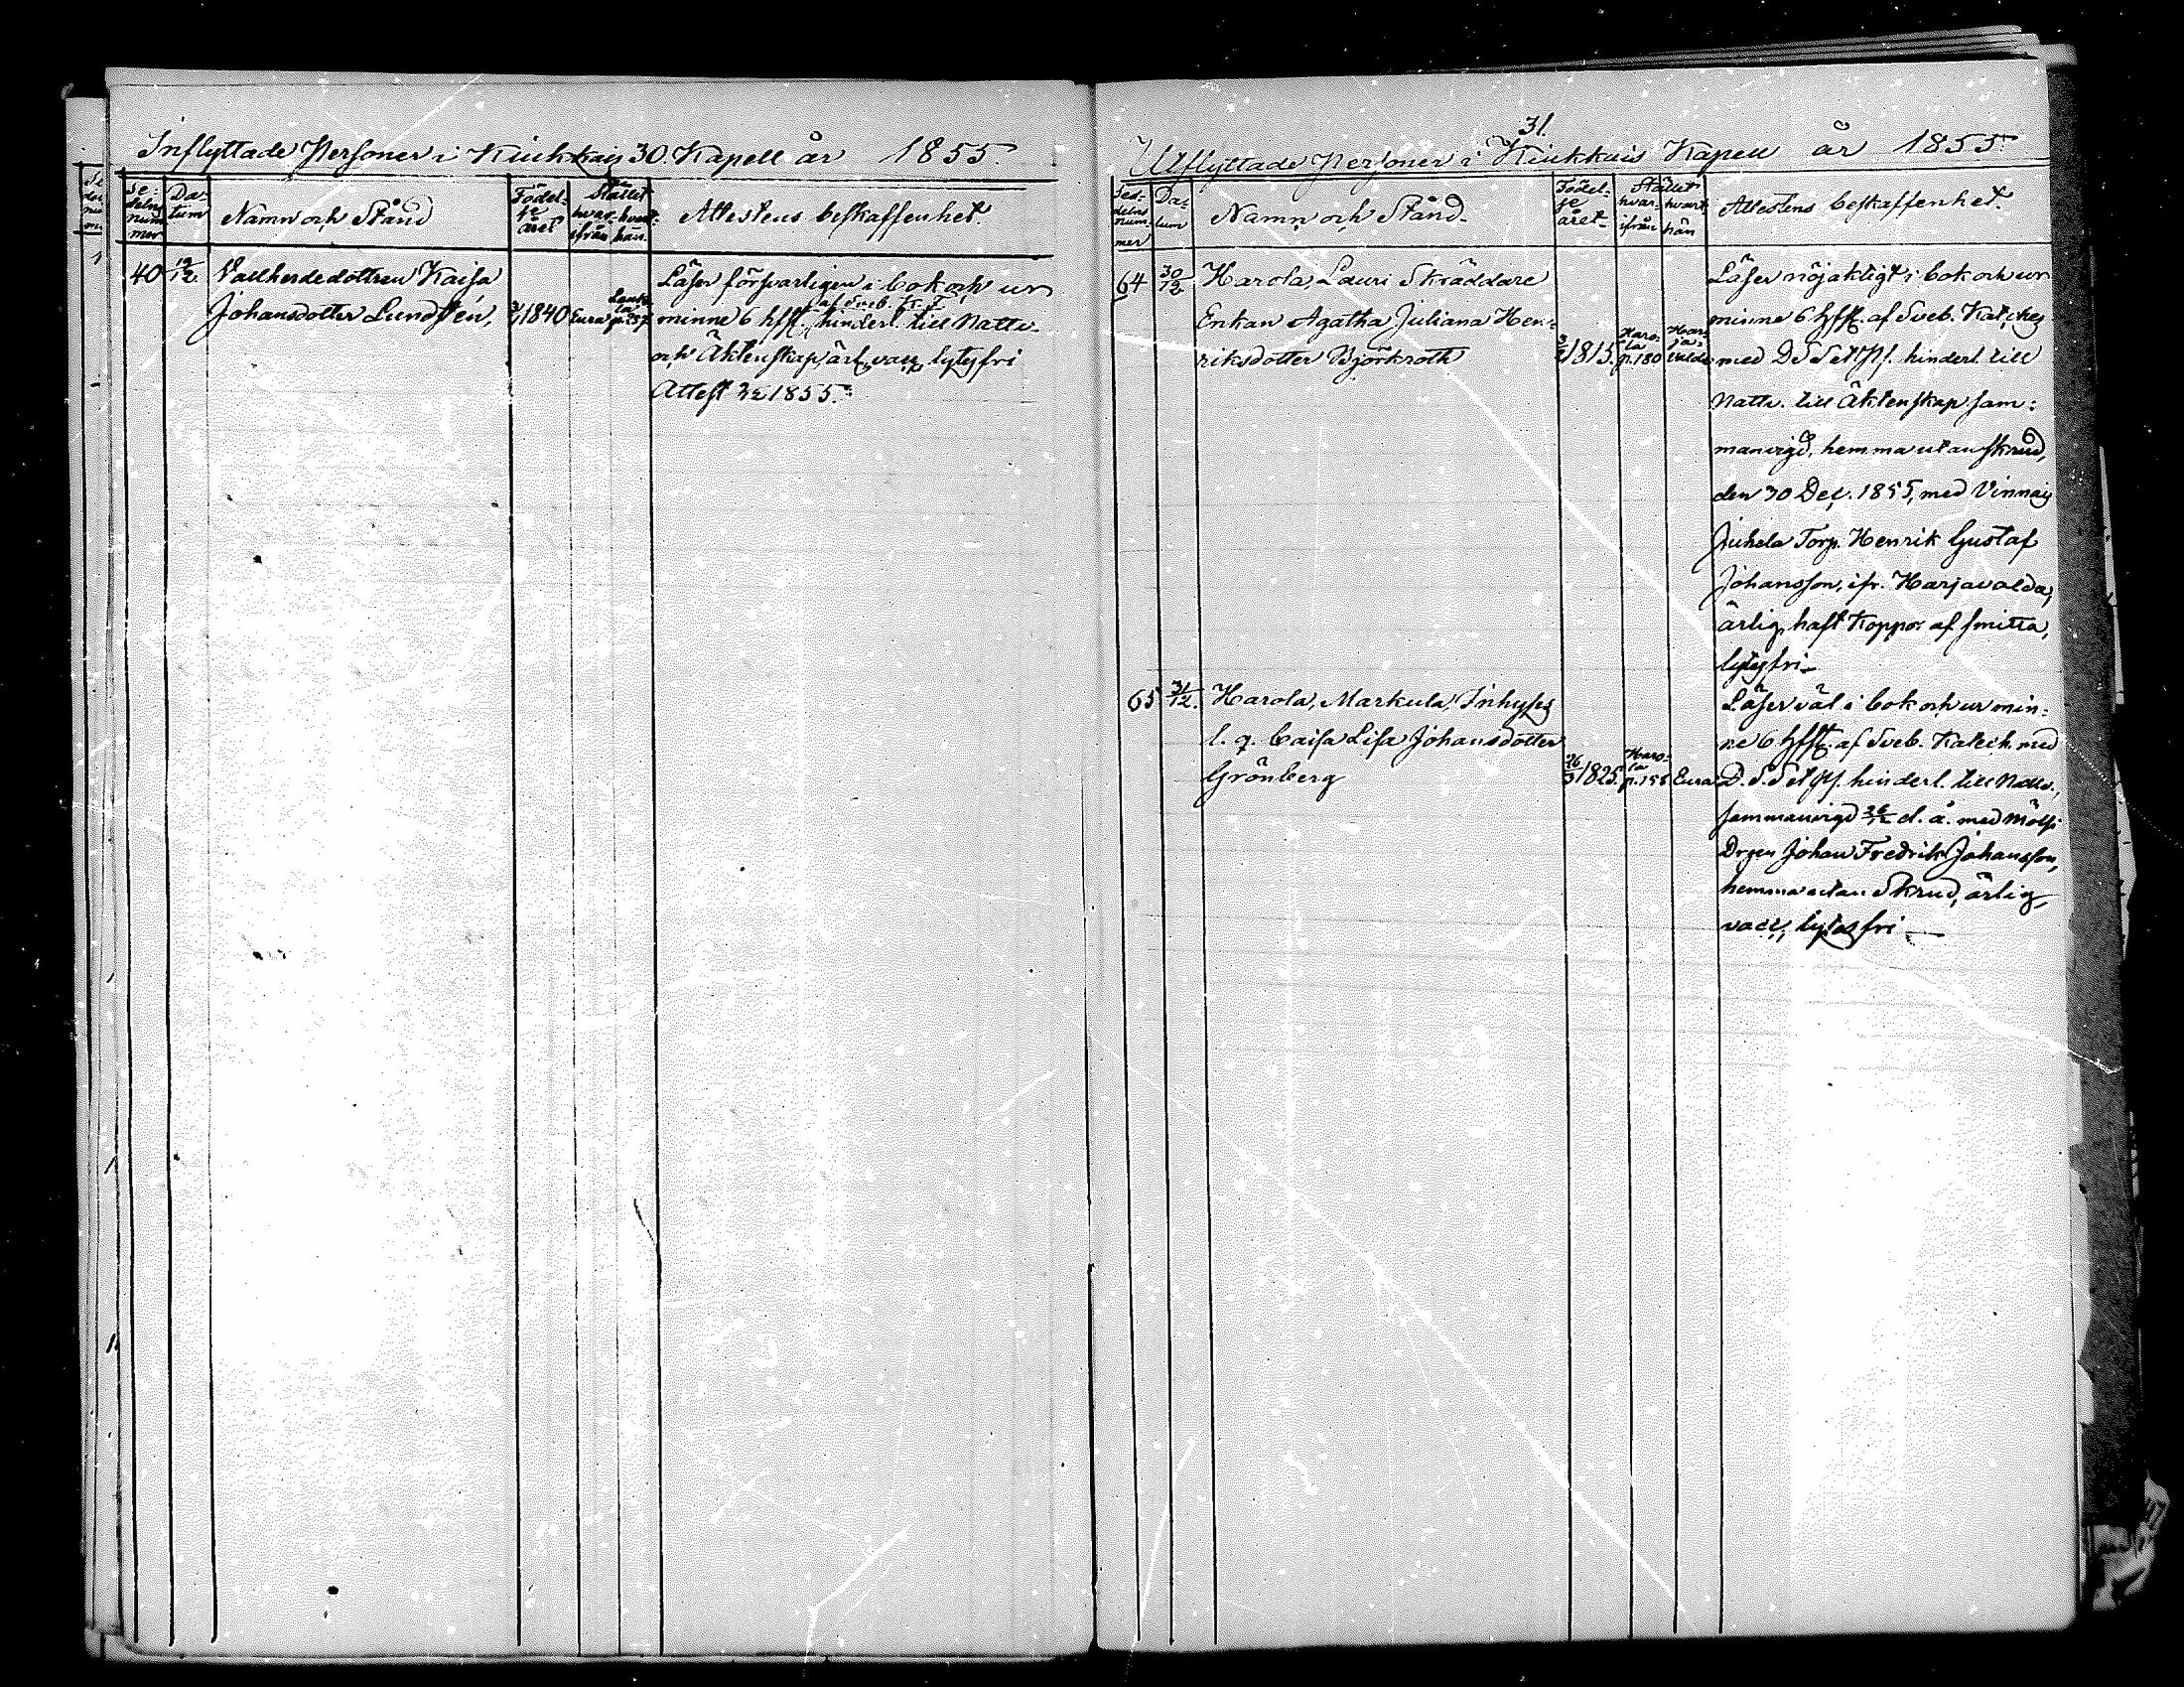 Inflyttade Personer i Kiukkais 30. Kapell år 1855.
Se-
delns
num-
mer
Da-
tum
Namn och Stånd
Födel-
se
året
Stället
hvar-
ifrån
hvart-
hän.
Attestens beskaffenhet.
40 19/12. Vallherdedottren Kaisa
Johansdotter Lundstén,
1840 Eura
p. 257.
Läser försvarligen i bok och ur
af Sveb. K. F.
minne 6 hfst., hinderl. till Nattv.
och Äktenskap, ärl. vacc. lytesfri
Attest 1855.
31.
Utflyttade Personer i Kiukkais Kapell år 1855.
Sed-
delns
num-
mer
Da-
tum
Namn och Stånd.
Födel-
se
året
Stället
hvar-
ifrån
hvart-
hän
Attestens beskaffenhet.
64 30/12 Harola, Lauri Skräddare
Enkan Agatha Juliana Hen-
riksdotter Björkroth
1815. Haro-
la
p. 180
Har-
ja-
valda
Läser nöjaktigt i bok och ur
minne 6 hfst. af Sveb. Kateches
med D. S. et Ps. hinderl. till
Nattv. till Äktenskap sam-
manvigd, hemma utan skrud,
den 30 Dec. 1855, med Vinnais
Juhela Torp. Henrik Gustaf
Johansson, ifr. Harjavalda,
ärlig, haft Koppor af smitta,
lytesfri
65 31/12. Harola, Markula, Inhyses
l. q. Caisa Lisa Johansdotter
Grönberg
26/3 1825. Haro-
la
p. 158 Eura
Läser väl i bok och ur min-
ne 6 hfst. af Sveb. Katech. med
D. S. et Ps. hinderl. till Nattv.,
sammanvigd 26/12 d. å. med
Drgen Johan Fredrik Johansson,
hemma utan Skrud, ärlig,
vacc., lytesfri